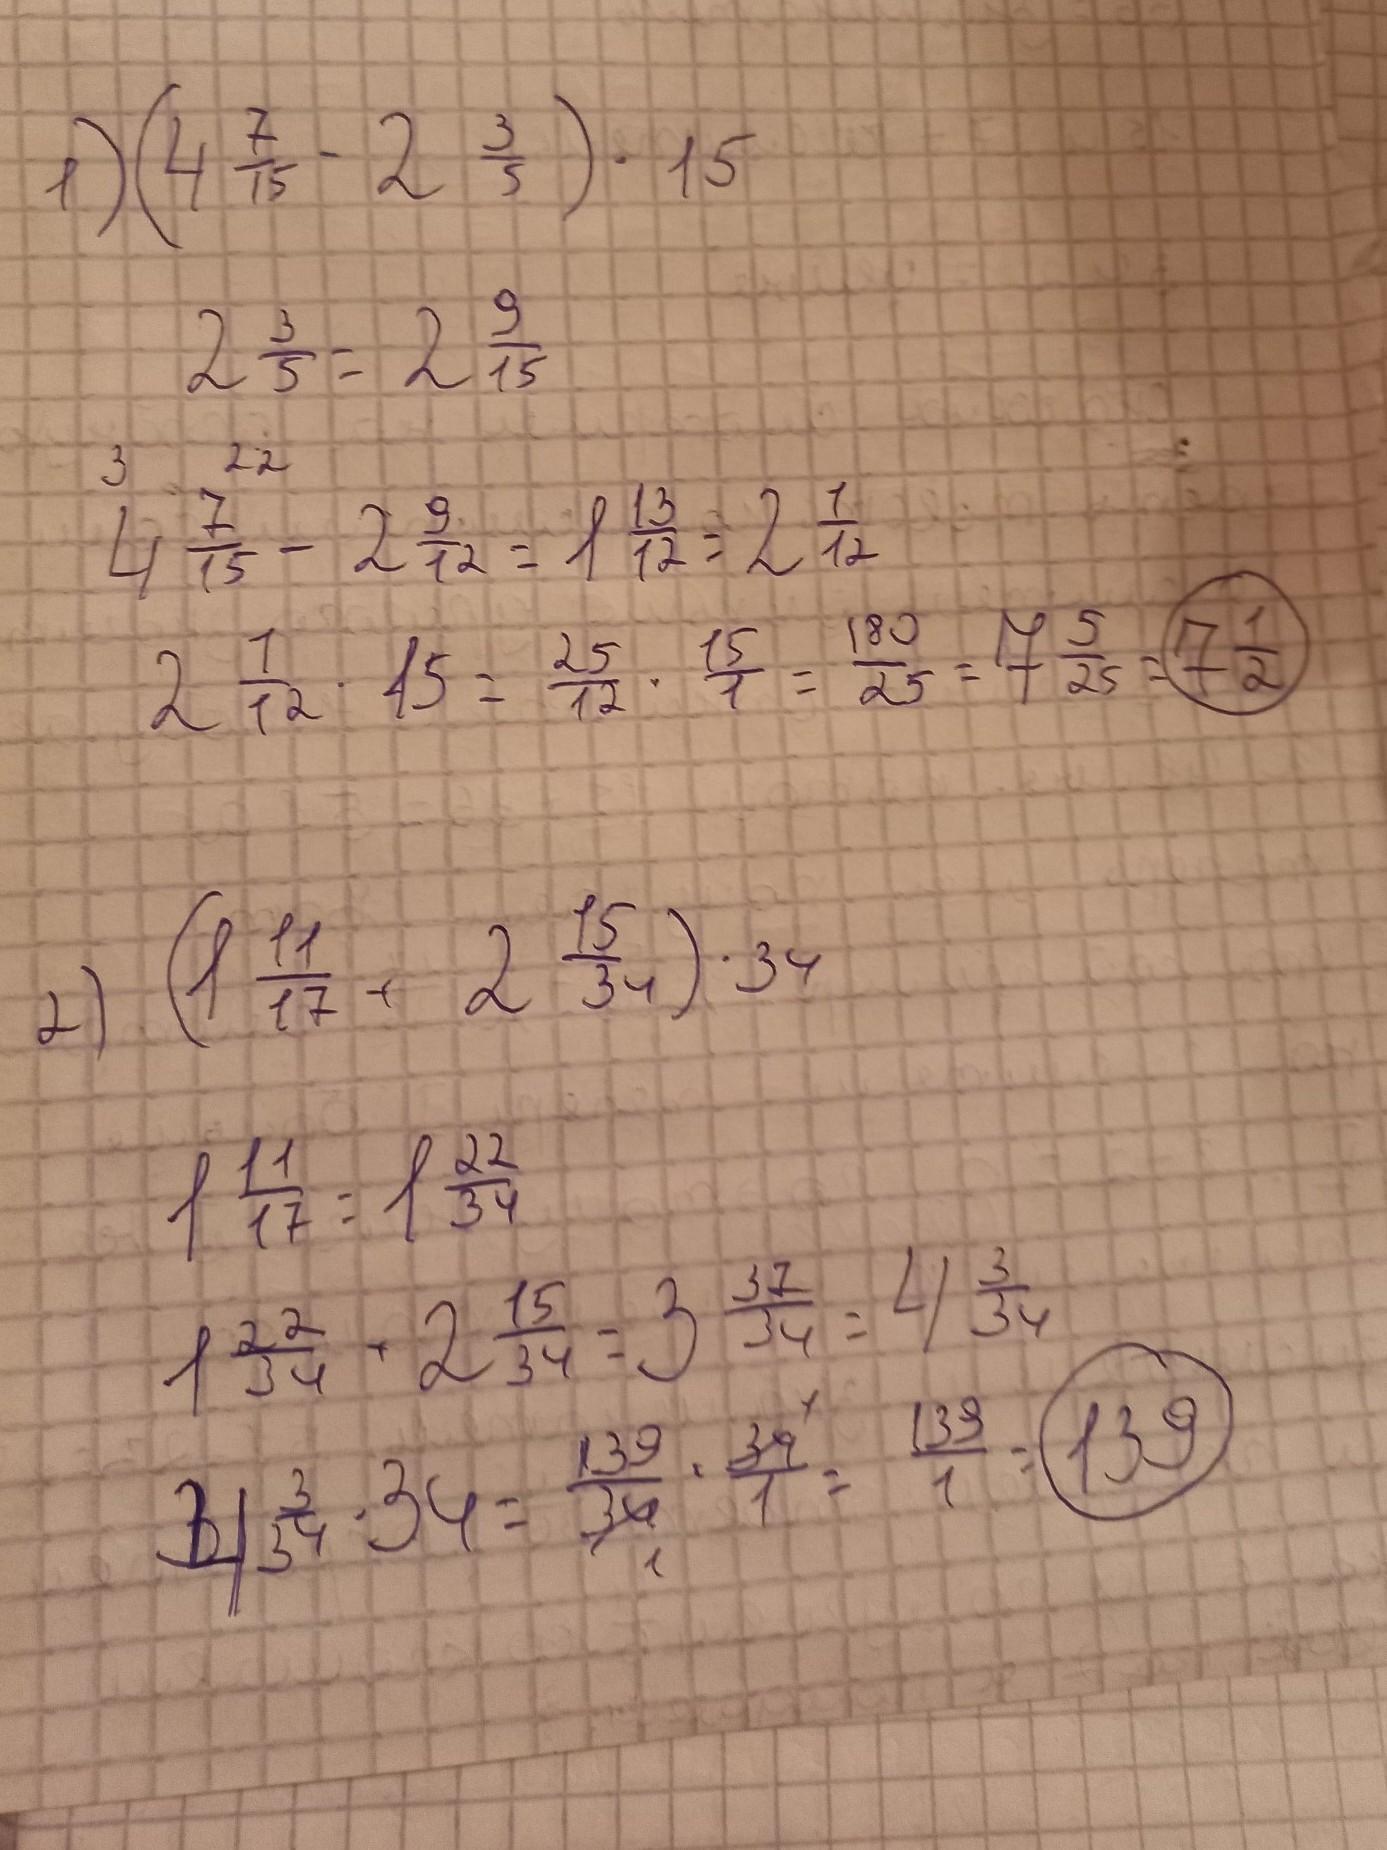 1) (4 7/15 - 2 3/5) · 15
2 3/5 = 2 9/15
3 22
4 7/15 - 2 9/12 = 1 13/12 = 2 1/12
2 1/12 · 15 = 25/12 · 15/1 = 180/25 = 7 5/25 = 7 1/2
2) (1 11/17 + 2 15/34) · 34
1 11/17 = 1 22/34
1 22/34 + 2 15/34 = 3 37/34 = 4 3/34
4 3/34 · 34 = 139/34 · 34/1 = 139/1 = 139
1 1